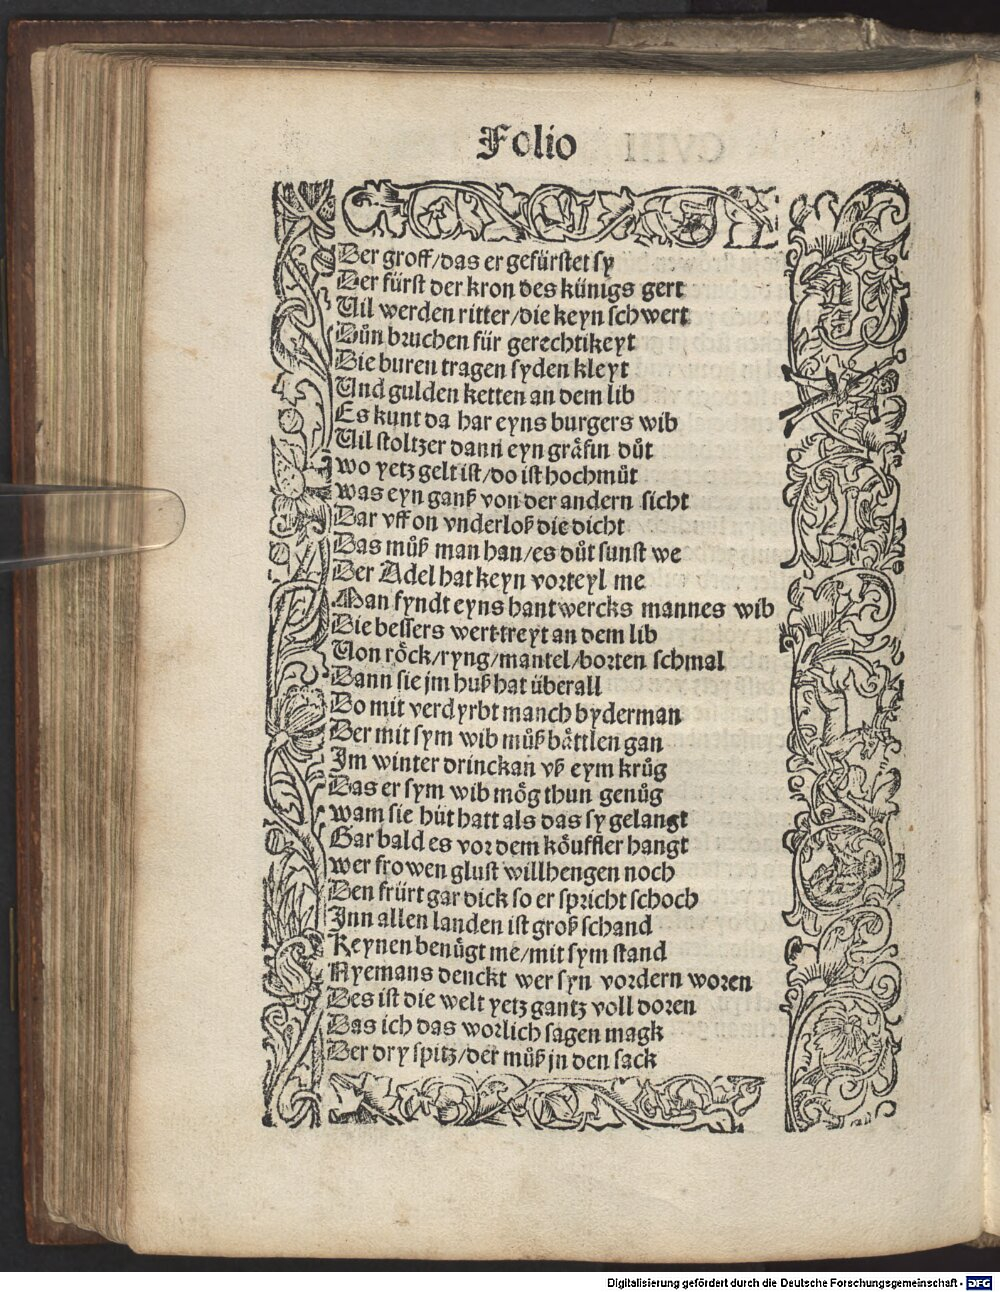 Folio
Der groff/das er gefürstet sy
Der fürst der kron des künigs gert
Vil werden ritter/die keyn schwert
Důn bruchen für gerechtikeyt
Die buren tragen syden kleyt
Vnd gulden ketten an dem lib
Es kunt da har eyns burgers wib
Vil stoltzer dann eyn gräfin důt
wo yetz gelt ist/do ist hochmůt
was eyn ganß von der andern sicht
Dar vff on vnderloß die dicht
Das můß man han/es důt sunst we
Der Adel hat keyn vorteyl me
Man fyndt eyns hantwercks mannes wib
Die bessers wert treyt an dem lib
Von röck/ryng/mantel/borten schmal
Dann sie jm huß hat überall
Do mit verdyrbt manch byderman
Der mit sym wib můß bättlen gan
Im winter drinckan vß eym krůg
Das er sym wib mög thun genůg
wam sie hüt hatt als das sy gelangt
Gar bald es vor dem köuffler hangt
wer frowen glust will hengen noch
Den frürt gar dick so er spricht schoch
Inn allen landen ist groß schand
Keynen benügt me/mit sym stand
Nyemans denckt wer syn vordern woren
Des ist die welt yetz gantz voll doren
Das ich das worlich sagen magk
Der dry spitz/der můß jn den sack
Digitalisierung gefördert durch die Deutsche Forschungsgemeinschaft - DFG